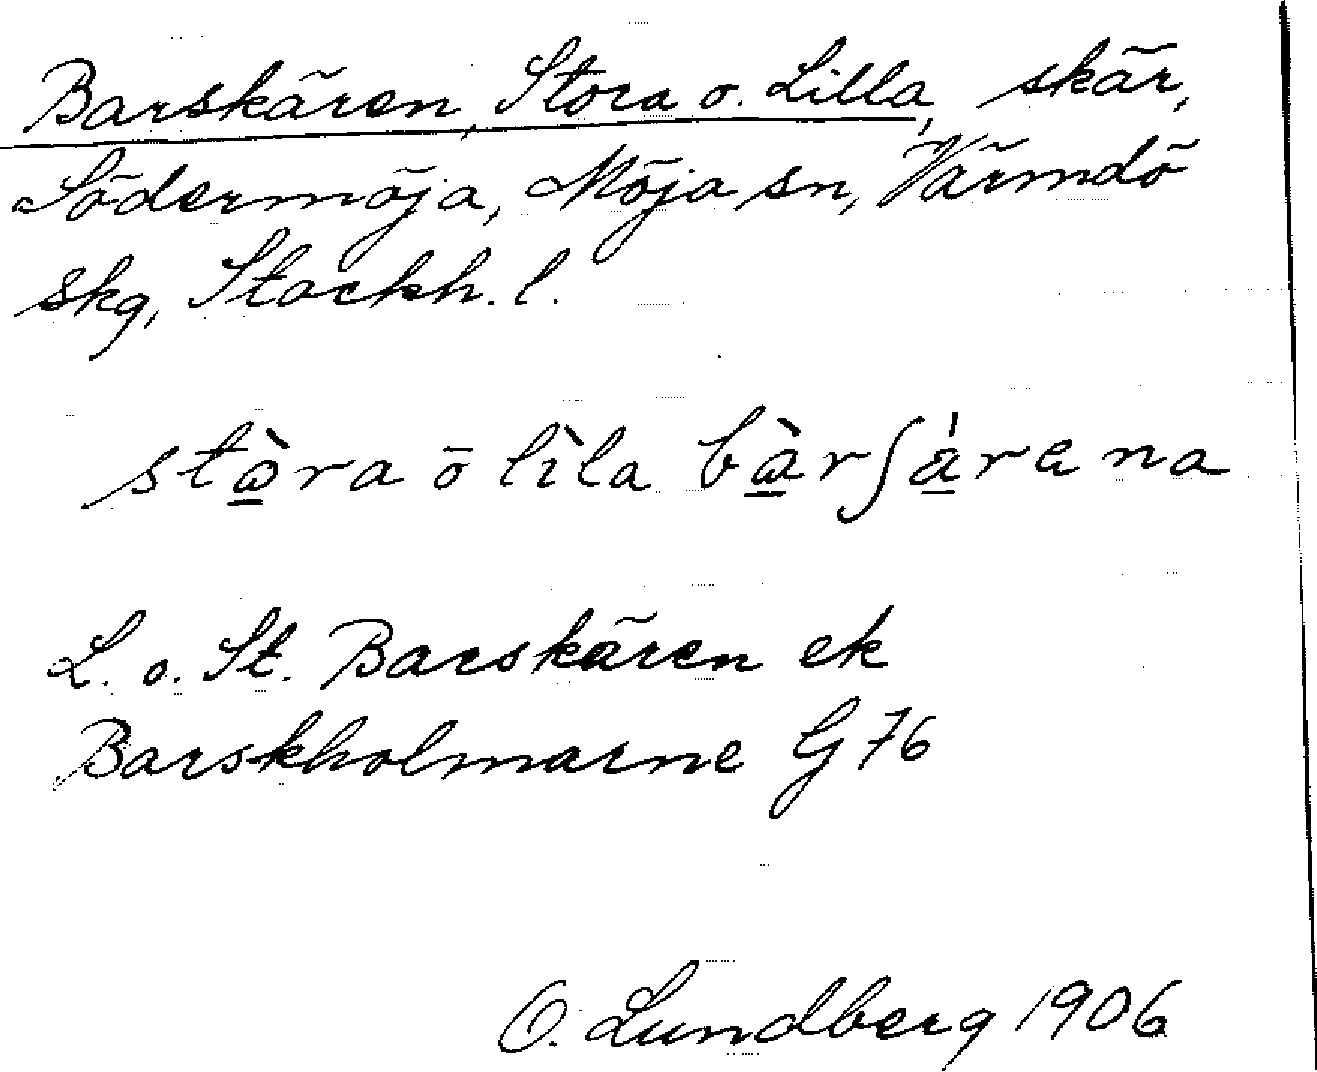 Barskären, Stora o. Lilla, skär,
Södermöja, Möja sn, Värmdö
skg, Stockh. l.
stὼ̲ra ō lìla bὼ̲rʃá̲rena
L. o. St. Barskären ek
Barskholmarne G 76
O. Lundberg 1906